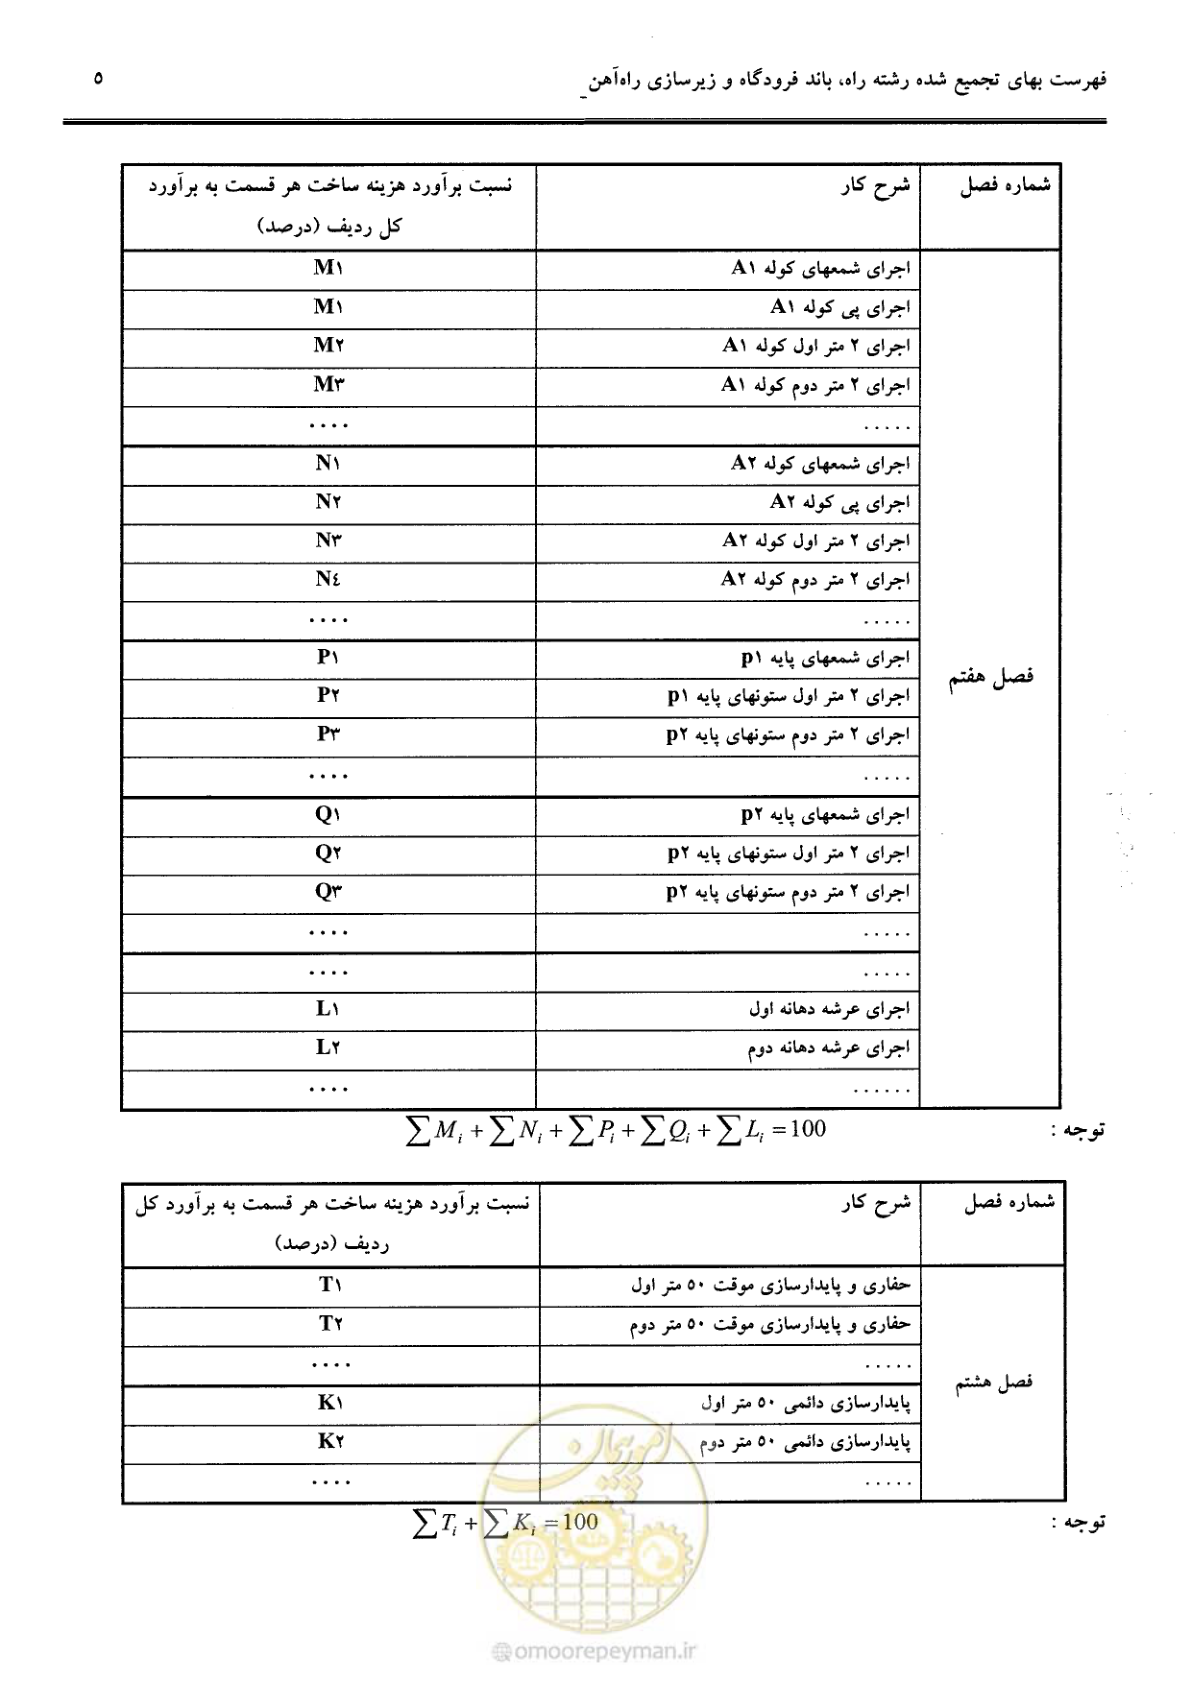 فهرست بهای تجمیع شده رشته راه، باند فرودگاه و زیرسازی راه‌آهن_ ٥
شماره فصل شرح کار نسبت برآورد هزینه ساخت هر قسمت به برآورد
کل ردیف (درصد)
اجرای شمعهای کوله A۱ M۱
اجرای پی کوله A۱ M۱
اجرای ۲ متر اول کوله A۱ M۲
اجرای ۲ متر دوم کوله A۱ M۳
..... ....
اجرای شمعهای کوله A۲ N۱
اجرای پی کوله A۲ N۲
اجرای ۲ متر اول کوله A۲ N۳
اجرای ۲ متر دوم کوله A۲ N٤
..... ....
اجرای شمعهای پایه p۱ P۱
فصل هفتم
اجرای ۲ متر اول ستونهای پایه p۱ P۲
اجرای ۲ متر دوم ستونهای پایه p۲ P۳
..... ....
اجرای شمعهای پایه p۲ Q۱
اجرای ۲ متر اول ستونهای پایه p۲ Q۲
اجرای ۲ متر دوم ستونهای پایه p۲ Q۳
..... ....
..... ....
اجرای عرشه دهانه اول L۱
اجرای عرشه دهانه دوم L۲
...... ....
توجه : ∑Mᵢ + ∑Nᵢ + ∑Pᵢ + ∑Qᵢ + ∑Lᵢ = 100
شماره فصل شرح کار نسبت برآورد هزینه ساخت هر قسمت به برآورد کل
ردیف (درصد)
حفاری و پایدارسازی موقت ٥۰ متر اول T۱
حفاری و پایدارسازی موقت ٥۰ متر دوم T۲
..... ....
فصل هشتم
پایدارسازی دائمی ٥۰ متر اول K۱
پایدارسازی دائمی ٥۰ متر دوم K۲
..... ....
توجه : ∑Tᵢ + ∑Kᵢ = 100
امور پیمان
@omoorepeyman.ir